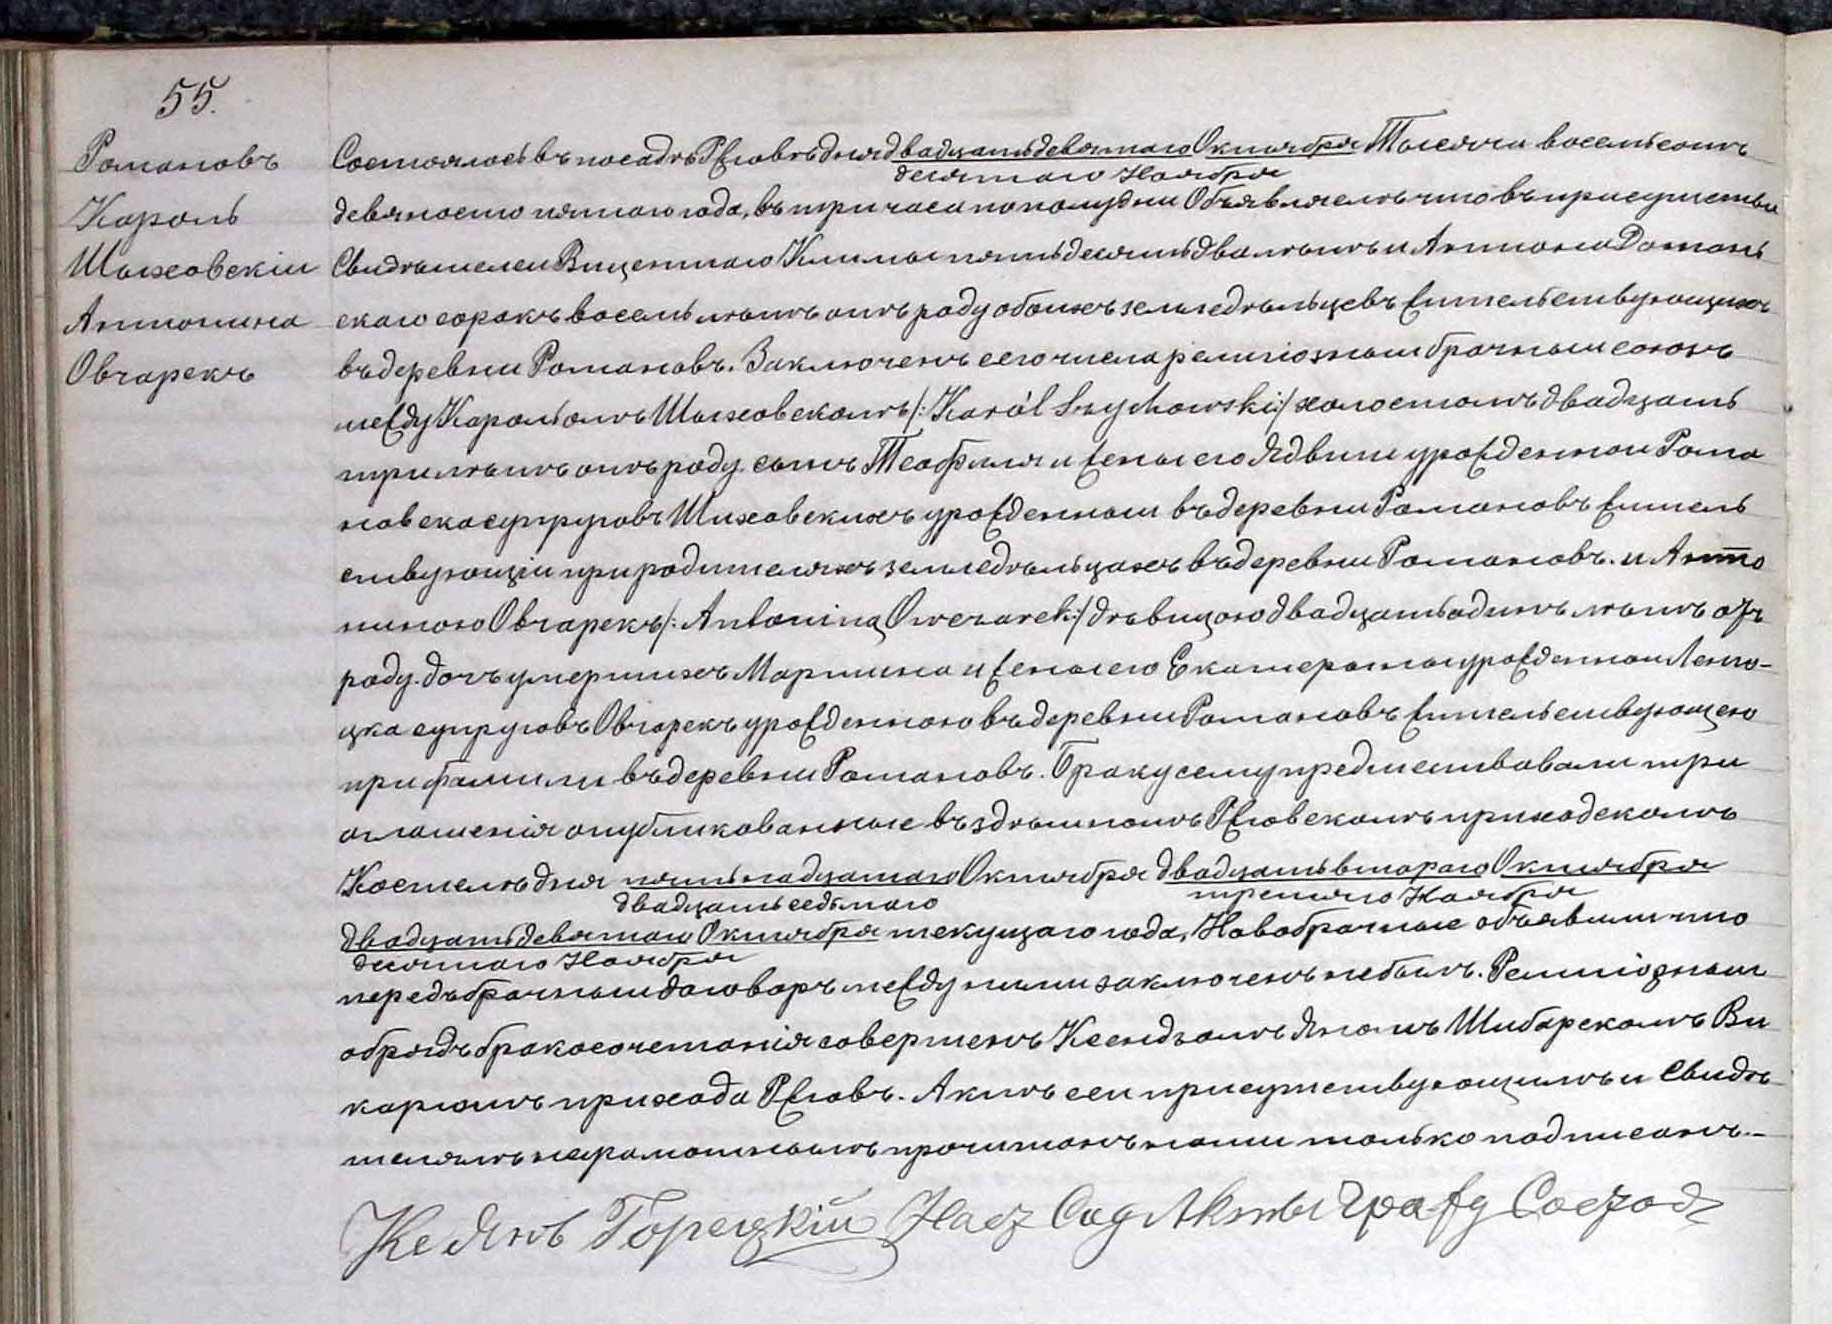 55.
Романовъ
Кароль
Шыховскій
Антонина
Овчарекъ
Состоялось въ посадѣ Ржговѣ дня двадцать девятаго Октября Тысяча восемьсотъ
десятаго Ноября
девяносто пятаго года, въ три часа по полудни Объявляемъ что въ присутствіи
Свидѣтелей Виценты Климы пятьдесятъ два лѣтъ и Антона Доман
скаго сорокъ восемь лѣтъ отъ роду обоихъ земледѣльцевъ жительствующихъ
въ деревни Романовъ. Заключенъ сего числа религіозный брачный союзъ
между Каролѣмъ Шыховскомъ /: Karól Szychowski :/ холостомъ двадцать
три лѣтъ отъ роду, сынъ Теофиля и жены его Ядвиги урожденной Рома
новска супруговъ Шиховскихъ урожденный въ деревни Романовъ житель
ствующій при родителяхъ земледѣльцахъ въ деревни Романовъ. и Анто
ниною Овчарекъ /: Antonina Owczarek :/ дѣвицою двадцать одинъ лѣтъ отъ
роду. дочъ умершихъ Мартина и жены его Екатерины урожденной
супруговъ Овчарекъ урожденною въ деревни Романовъ жительствующею
при фамили въ деревни Романовъ. Браку сему предшествовали три
оглашенія опубликованные въ здѣшномъ Ржговскомъ приходскомъ
Костелѣ дня пятьнадцатаго Октября двадцать втораго Октября
двадцать седьмаго третяго Ноября
двадцать девятаго Октября текущаго года, Новобрачные объявили что
десятаго Ноября
передъбрачный договоръ между ними заключенъ небылъ. Религіозный
обрядъ бракосочетанія совершенъ Ксендзомъ Яномъ Шибарскомъ Ви
каріомъ прихода Ржговъ. Актъ сей присутствующимъ и Свидѣ
телямъ неграмотнымъ прочитанъ нами только подписанъ.-
Кс Янъ Горецкій Наст Сод Акты Гражд Состод